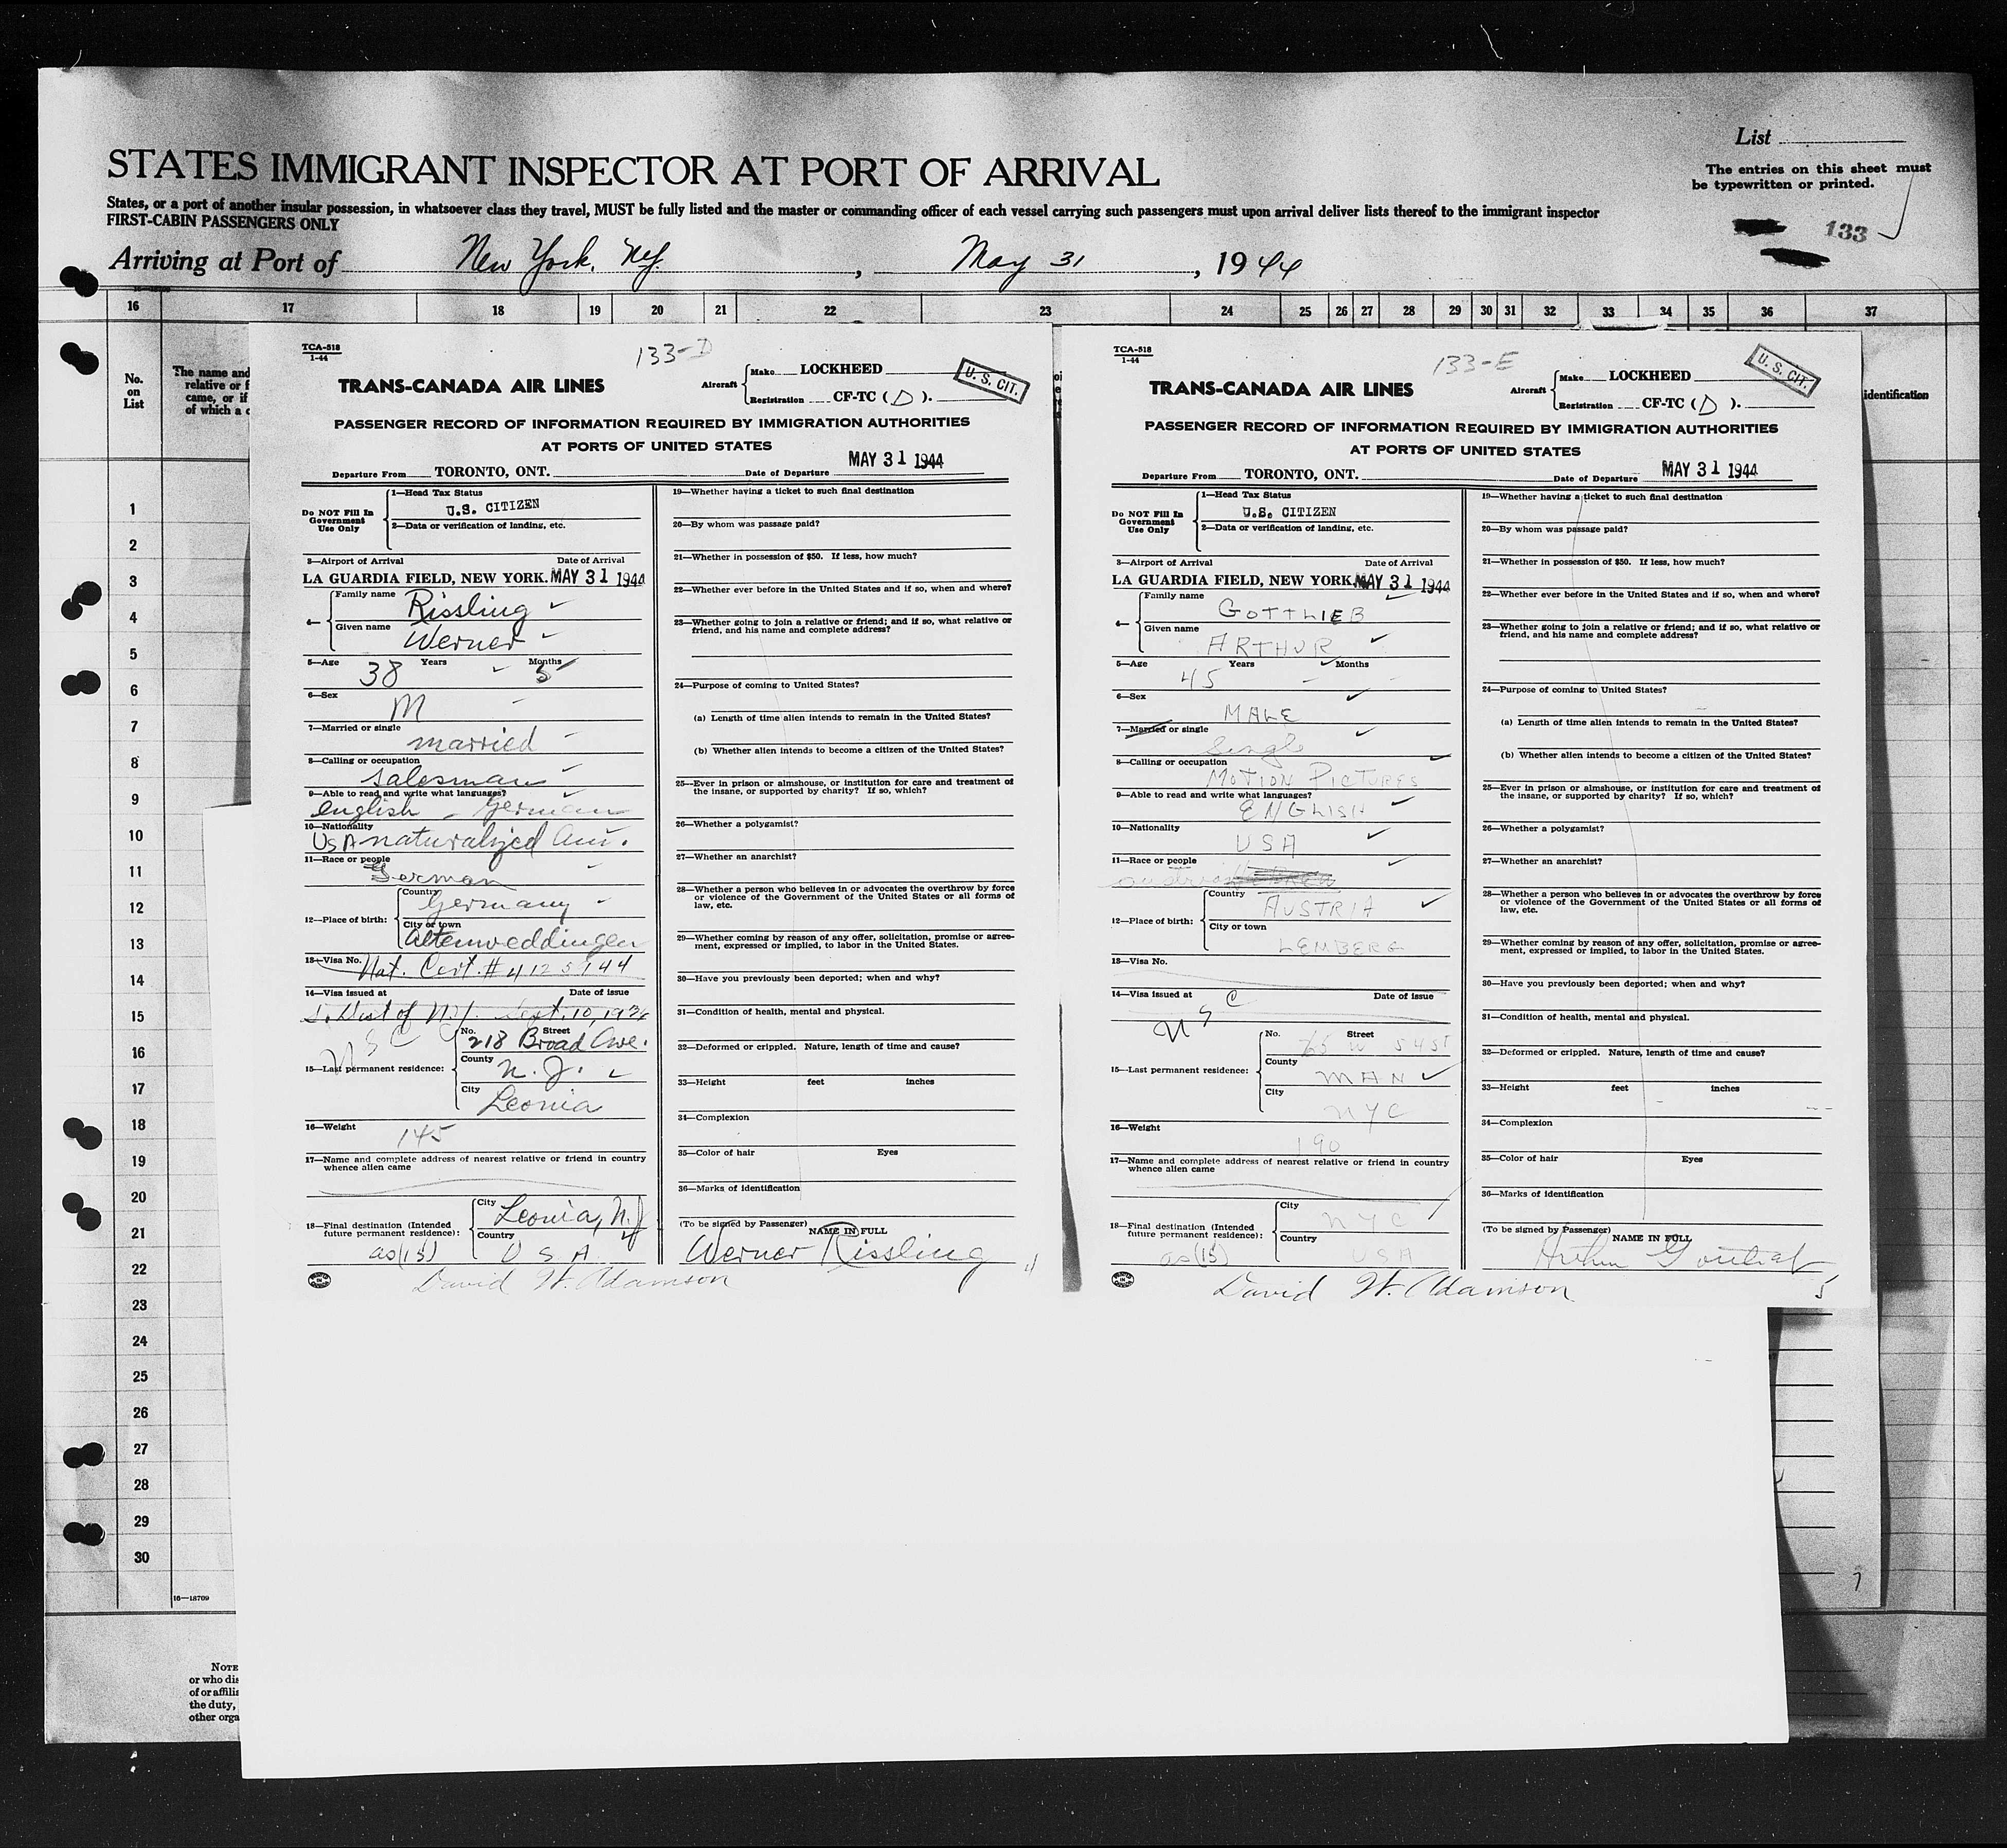 List
The entries on this sheet must
be typewritten or printed.
133
STATES IMMIGRANT INSPECTOR AT PORT OF ARRIVAL
States, or a port of another insular possession, in whatsoever class they travel, MUST be fully listed and the master or commanding officer of each vessel carrying such passengers must upon arrival deliver lists thereof to the immigrant inspector
FIRST-CABIN PASSENGERS ONLY
Arriving at Port of New York, NY. , May 31 , 1944
16 17 18 19 20 21 22 23 24 25 26 27 28 29 30 31 32 33 34 35 36 37
No.
on
List
The name and
relative or f
came, or if
of which a c
identification
1
2
3
4
5
6
7
8
9
10
11
12
13
14
15
16
17
18
19
20
21
22
23
24
25
26
27
28
29
30
16—18709
NOTE
or who dis
of or affilia
the duty,
other orga
TCA-518
1-44
133-D
TRANS-CANADA AIR LINES
Aircraft
Make LOCKHEED
Registration CF-TC (D).
U. S. CIT.
PASSENGER RECORD OF INFORMATION REQUIRED BY IMMIGRATION AUTHORITIES
AT PORTS OF UNITED STATES
Departure From TORONTO, ONT. Date of Departure MAY 31 1944
Do NOT Fill In
Government
Use Only
1—Head Tax Status
U.S. CITIZEN
2—Data or verification of landing, etc.
3—Airport of Arrival Date of Arrival
LA GUARDIA FIELD, NEW YORK. MAY 31 1944
4—
Family name Rissling
Given name Werner
5—Age 38 Years 5 Months
6—Sex M
7—Married or single
married
8—Calling or occupation
salesman
9—Able to read and write what languages?
english - German
10—Nationality
USA naturalized Am.
11—Race or people
German
12—Place of birth:
Country
Germany
City or town
Altenweddingen
13—Visa No. Nat. Cert. # 4125144
14—Visa issued at Date of issue
S. Dist of N.Y. Sept. 10, 1936
U S C
15—Last permanent residence:
No. Street
218 Broad Ave.
County
N. J.
City
Leonia
16—Weight
145
17—Name and complete address of nearest relative or friend in country
whence alien came
18—Final destination (Intended
future permanent residence):
as (15)
City
Leonia, N.J
Country
U S A
David W. Adamson
19—Whether having a ticket to such final destination
20—By whom was passage paid?
21—Whether in possession of $50. If less, how much?
22—Whether ever before in the United States and if so, when and where?
23—Whether going to join a relative or friend; and if so, what relative or
friend, and his name and complete address?
24—Purpose of coming to United States?
(a) Length of time alien intends to remain in the United States?
(b) Whether alien intends to become a citizen of the United States?
25—Ever in prison or almshouse, or institution for care and treatment of
the insane, or supported by charity? If so, which?
26—Whether a polygamist?
27—Whether an anarchist?
28—Whether a person who believes in or advocates the overthrow by force
or violence of the Government of the United States or all forms of
law, etc.
29—Whether coming by reason of any offer, solicitation, promise or agree-
ment, expressed or implied, to labor in the United States.
30—Have you previously been deported; when and why?
31—Condition of health, mental and physical.
32—Deformed or crippled. Nature, length of time and cause?
33—Height feet inches
34—Complexion
35—Color of hair Eyes
36—Marks of identification
(To be signed by Passenger) NAME IN FULL
Werner Rissling
TCA-518
1-44
133-E
TRANS-CANADA AIR LINES
Aircraft
Make LOCKHEED
Registration CF-TC (D).
U. S. CIT.
PASSENGER RECORD OF INFORMATION REQUIRED BY IMMIGRATION AUTHORITIES
AT PORTS OF UNITED STATES
Departure From TORONTO, ONT. Date of Departure MAY 31 1944
Do NOT Fill In
Government
Use Only
1—Head Tax Status
U.S. CITIZEN
2—Data or verification of landing, etc.
3—Airport of Arrival Date of Arrival
LA GUARDIA FIELD, NEW YORK. MAY 31 1944
4—
Family name
GOTTLIEB
Given name
ARTHUR
5—Age 45 Years Months
6—Sex
MALE
7—Married or single
Single
8—Calling or occupation
MOTION PICTURES
9—Able to read and write what languages?
ENGLISH
10—Nationality
USA
11—Race or people
12—Place of birth:
Country
AUSTRIA
City or town
LEMBERG
13—Visa No.
14—Visa issued at Date of issue
U S C
15—Last permanent residence:
No. Street
65 W 54 ST
County
MAN
City
NYC
16—Weight
190
17—Name and complete address of nearest relative or friend in country
whence alien came
18—Final destination (Intended
future permanent residence):
as (15)
City
NYC
Country
USA
David W. Adamson
19—Whether having a ticket to such final destination
20—By whom was passage paid?
21—Whether in possession of $50. If less, how much?
22—Whether ever before in the United States and if so, when and where?
23—Whether going to join a relative or friend; and if so, what relative or
friend, and his name and complete address?
24—Purpose of coming to United States?
(a) Length of time alien intends to remain in the United States?
(b) Whether alien intends to become a citizen of the United States?
25—Ever in prison or almshouse, or institution for care and treatment of
the insane, or supported by charity? If so, which?
26—Whether a polygamist?
27—Whether an anarchist?
28—Whether a person who believes in or advocates the overthrow by force
or violence of the Government of the United States or all forms of
law, etc.
29—Whether coming by reason of any offer, solicitation, promise or agree-
ment, expressed or implied, to labor in the United States.
30—Have you previously been deported; when and why?
31—Condition of health, mental and physical.
32—Deformed or crippled. Nature, length of time and cause?
33—Height feet inches
34—Complexion
35—Color of hair Eyes
36—Marks of identification
(To be signed by Passenger) NAME IN FULL
Arthur Gottlieb